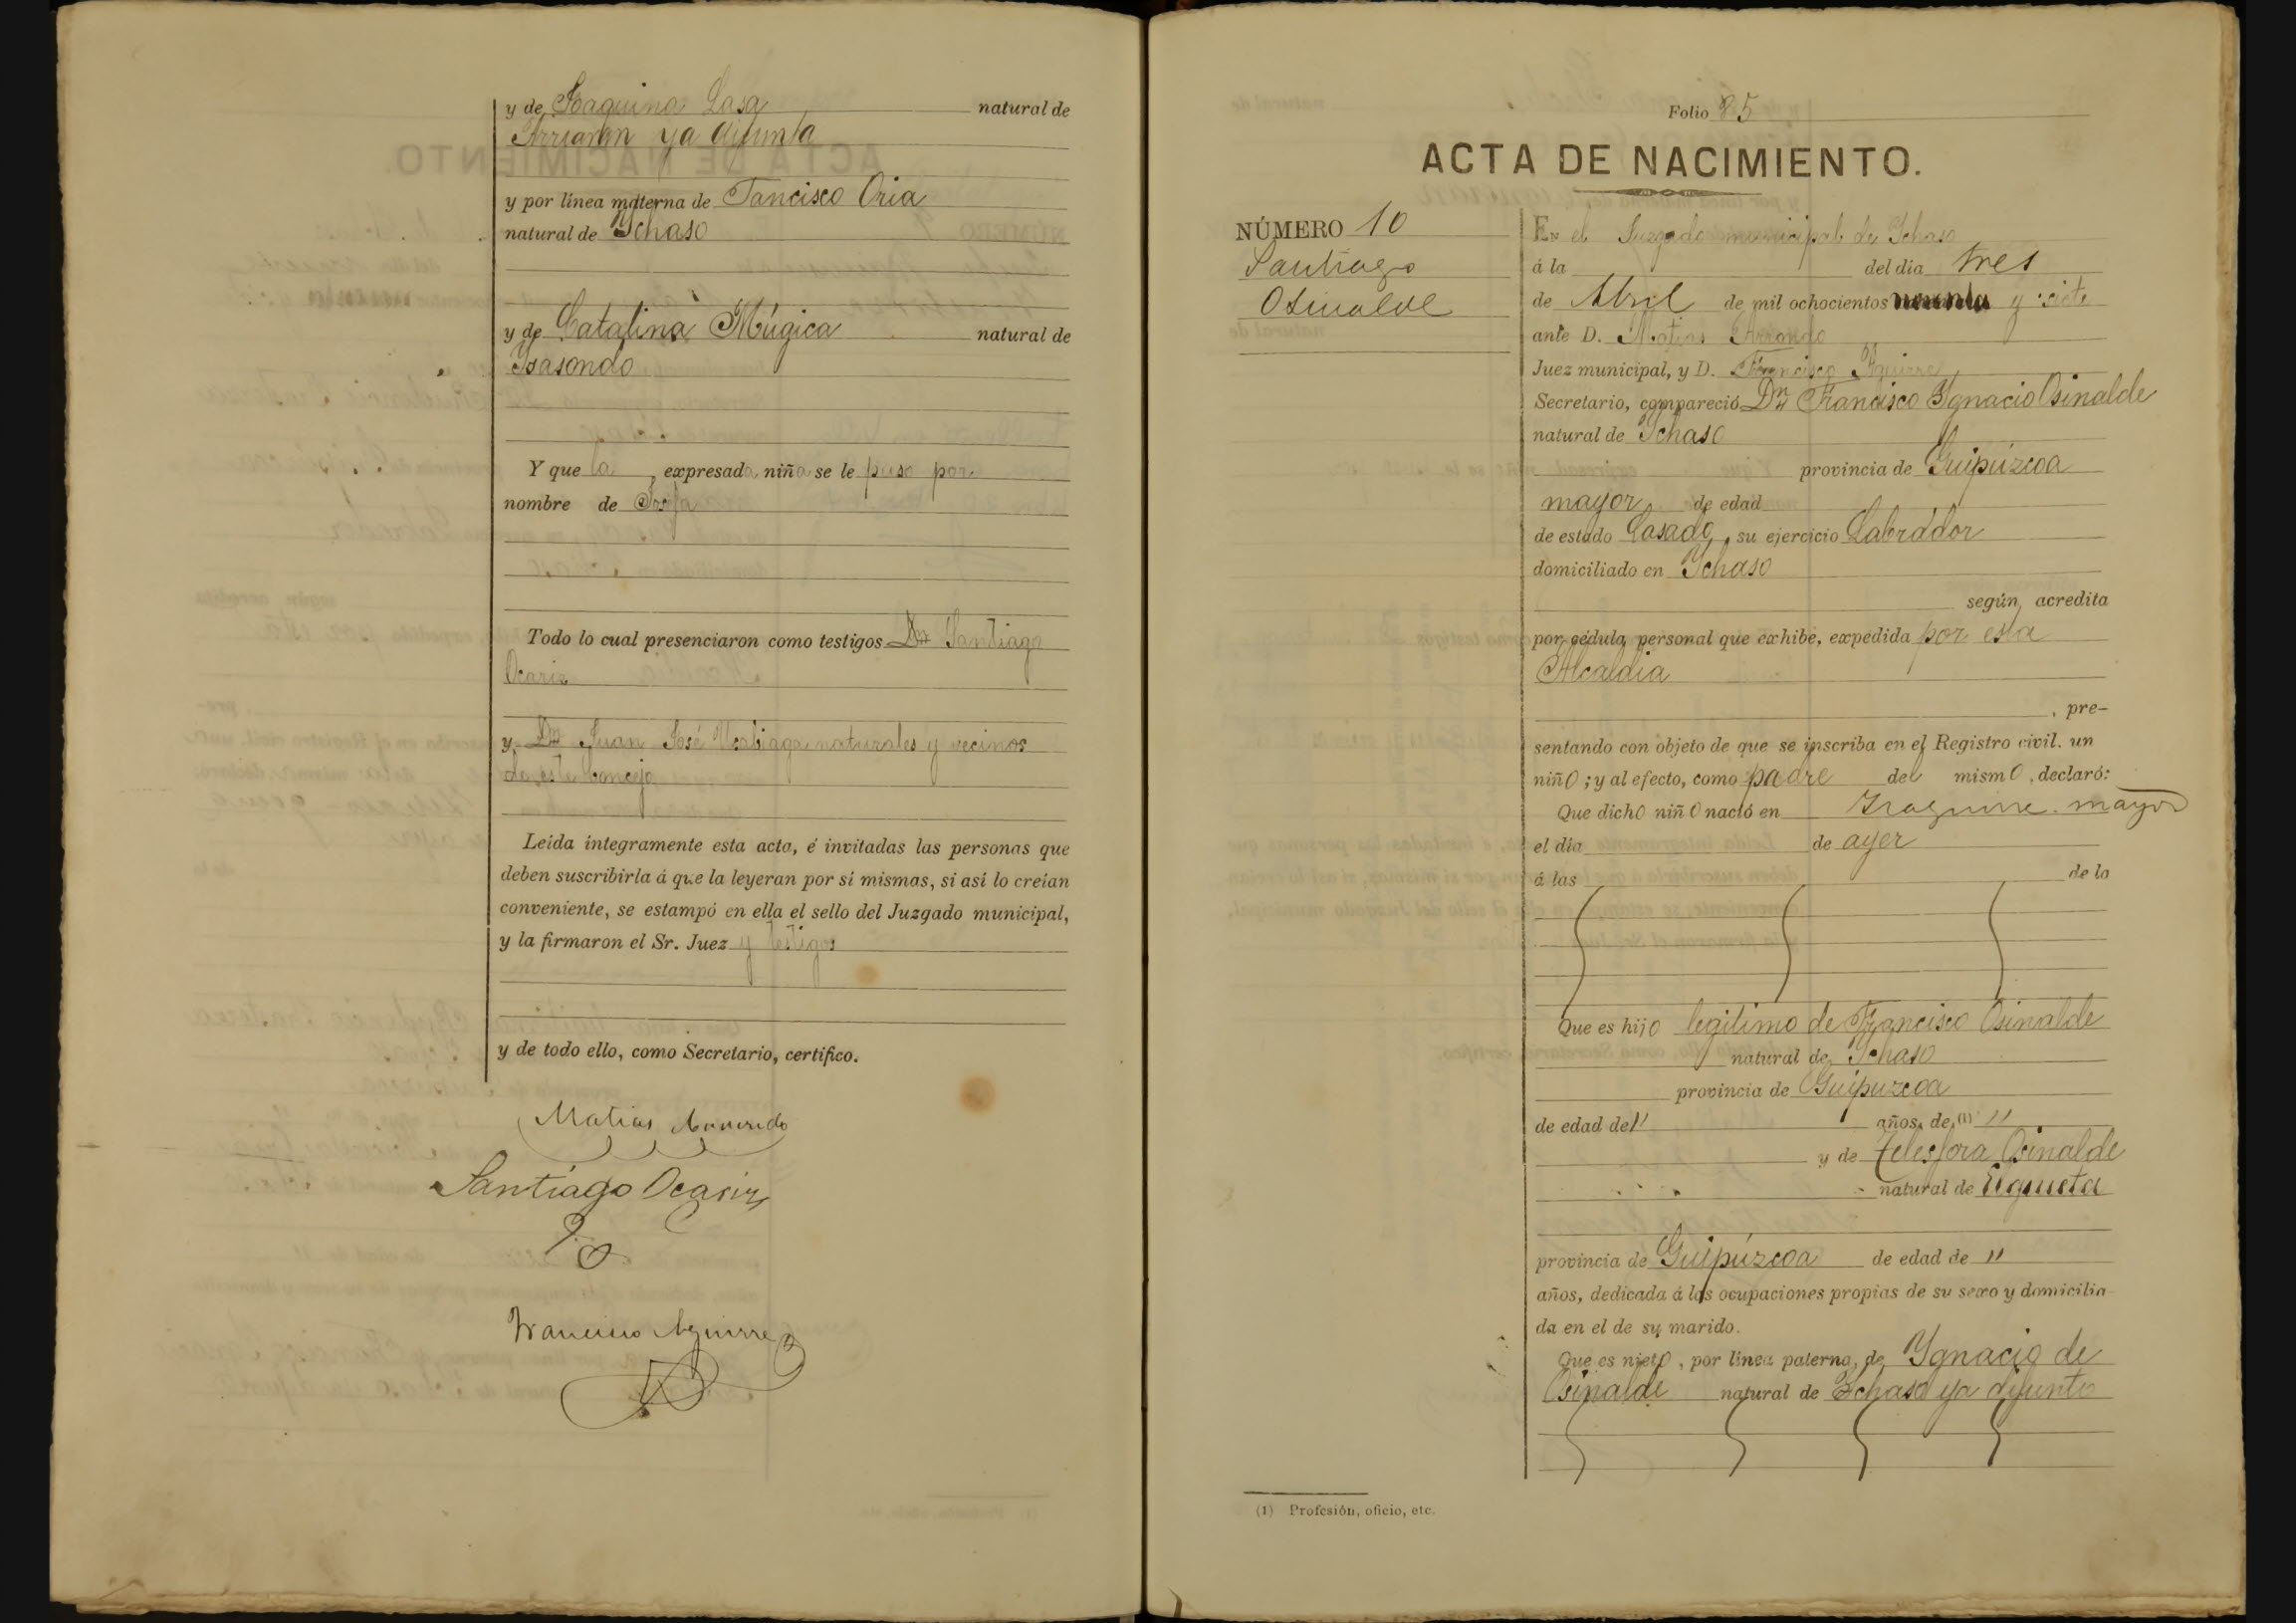 y de Joaquina Lasa natural de
Arriaran ya difunta
y por línea materna de Francisco Oria
natural de Ychaso
y de Catalina Múgica natural de
Ysasondo
Y que la expresada niña se le puso por
nombre de Josefa
Todo lo cual presenciaron como testigos Dn Santiago
Ocariz
y Dn Juan José naturales y vecinos
de este Concejo
Leída íntegramente esta acta, é invitadas las personas que
deben suscribirla á que la leyeran por sí mismas, si así lo creían
conveniente, se estampó en ella el sello del Juzgado municipal,
y la firmaron el Sr. Juez y testigos
y de todo ello, como Secretario, certifico.
Matias Arrondo
Santiago Ocariz
Francisco Aguirre
Folio 85
ACTA DE NACIMIENTO.
NÚMERO 10
Santiago
Osinalde
En el Juzgado municipal de Ychaso
á la del día tres
de Abril de mil ochocientos noventa y siete
ante D. Matias Arrondo
Juez municipal, y D. Francisco Aguirre
Secretario, compareció Dn Francisco Ygnacio Osinalde
natural de Ychaso
provincia de Guipúzcoa
mayor de edad
de estado Casado, su ejercicio Labrador
domiciliado en Ychaso
según acredita
por cédula personal que exhibe, expedida por esta
Alcaldia
, pre-
sentando con objeto de que se inscriba en el Registro civil. un
niño; y al efecto, como padre del mismo, declaró:
Que dicho niño nació en Yraguirre mayor
el día de ayer
á las de la
Que es hijo legitimo de Francisco Osinalde
natural de Ychaso
provincia de Guipuzcoa
de edad de " años, de (1) "
y de Telesfora Osinalde
natural de Ezquieta
provincia de Guipúzcoa de edad de "
años, dedicada á las ocupaciones propias de su sexo y domicilia-
da en el de su marido.
Que es nieto, por línea paterna, de Ygnacio de
Osinalde natural de Ychaso ya difunto
(1) Profesión, oficio, etc.